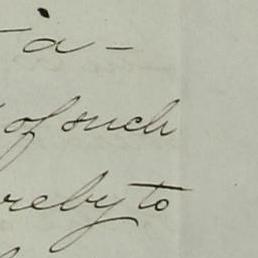 a -
of such
reby to